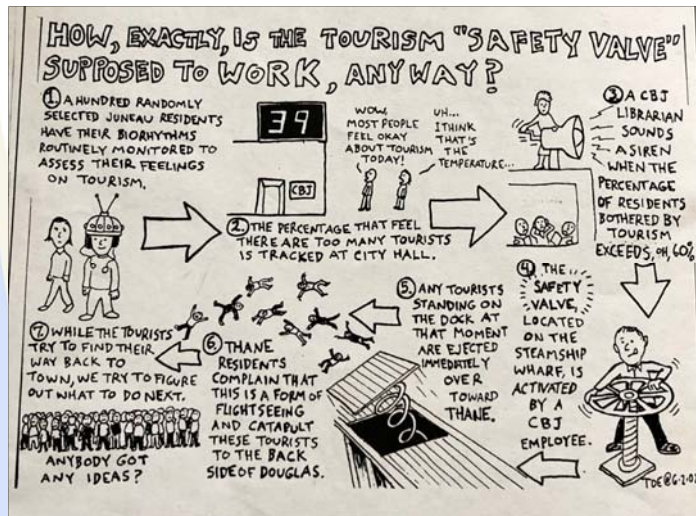 HOW, EXACTLY, IS THE TOURISM "SAFETY VALVE"
SUPPOSED TO WORK, ANYWAY?
① A HUNDRED RANDOMLY
SELECTED JUNEAU RESIDENTS
HAVE THEIR BIORHYTHMS
ROUTINELY MONITORED TO
ASSESS THEIR FEELINGS
ON TOURISM.
39
CBJ
WOW,
MOST PEOPLE
FEEL OKAY
ABOUT TOURISM
TODAY!
UH...
I THINK
THAT'S
THE
TEMPERATURE...
② THE PERCENTAGE THAT FEEL
THERE ARE TOO MANY TOURISTS
IS TRACKED AT CITY HALL.
③ A CBJ
LIBRARIAN
SOUNDS
A SIREN
WHEN THE
PERCENTAGE
OF RESIDENTS
BOTHERED BY
TOURISM
EXCEEDS, OH, 60%
④ THE
SAFETY
VALVE,
LOCATED
ON THE
STEAMSHIP
WHARF, IS
ACTIVATED
BY A
CBJ
EMPLOYEE.
⑤ ANY TOURISTS
STANDING ON
THE DOCK AT
THAT MOMENT
ARE EJECTED
IMMEDIATELY
OVER
TOWARD
THANE.
⑥ THANE
RESIDENTS
COMPLAIN THAT
THIS IS A FORM OF
FLIGHTSEEING
AND CATAPULT
THESE TOURISTS
TO THE BACK
SIDE OF DOUGLAS.
⑦ WHILE THE TOURISTS
TRY TO FIND THEIR
WAY BACK TO
TOWN, WE TRY TO FIGURE
OUT WHAT TO DO NEXT.
ANYBODY GOT
ANY IDEAS?